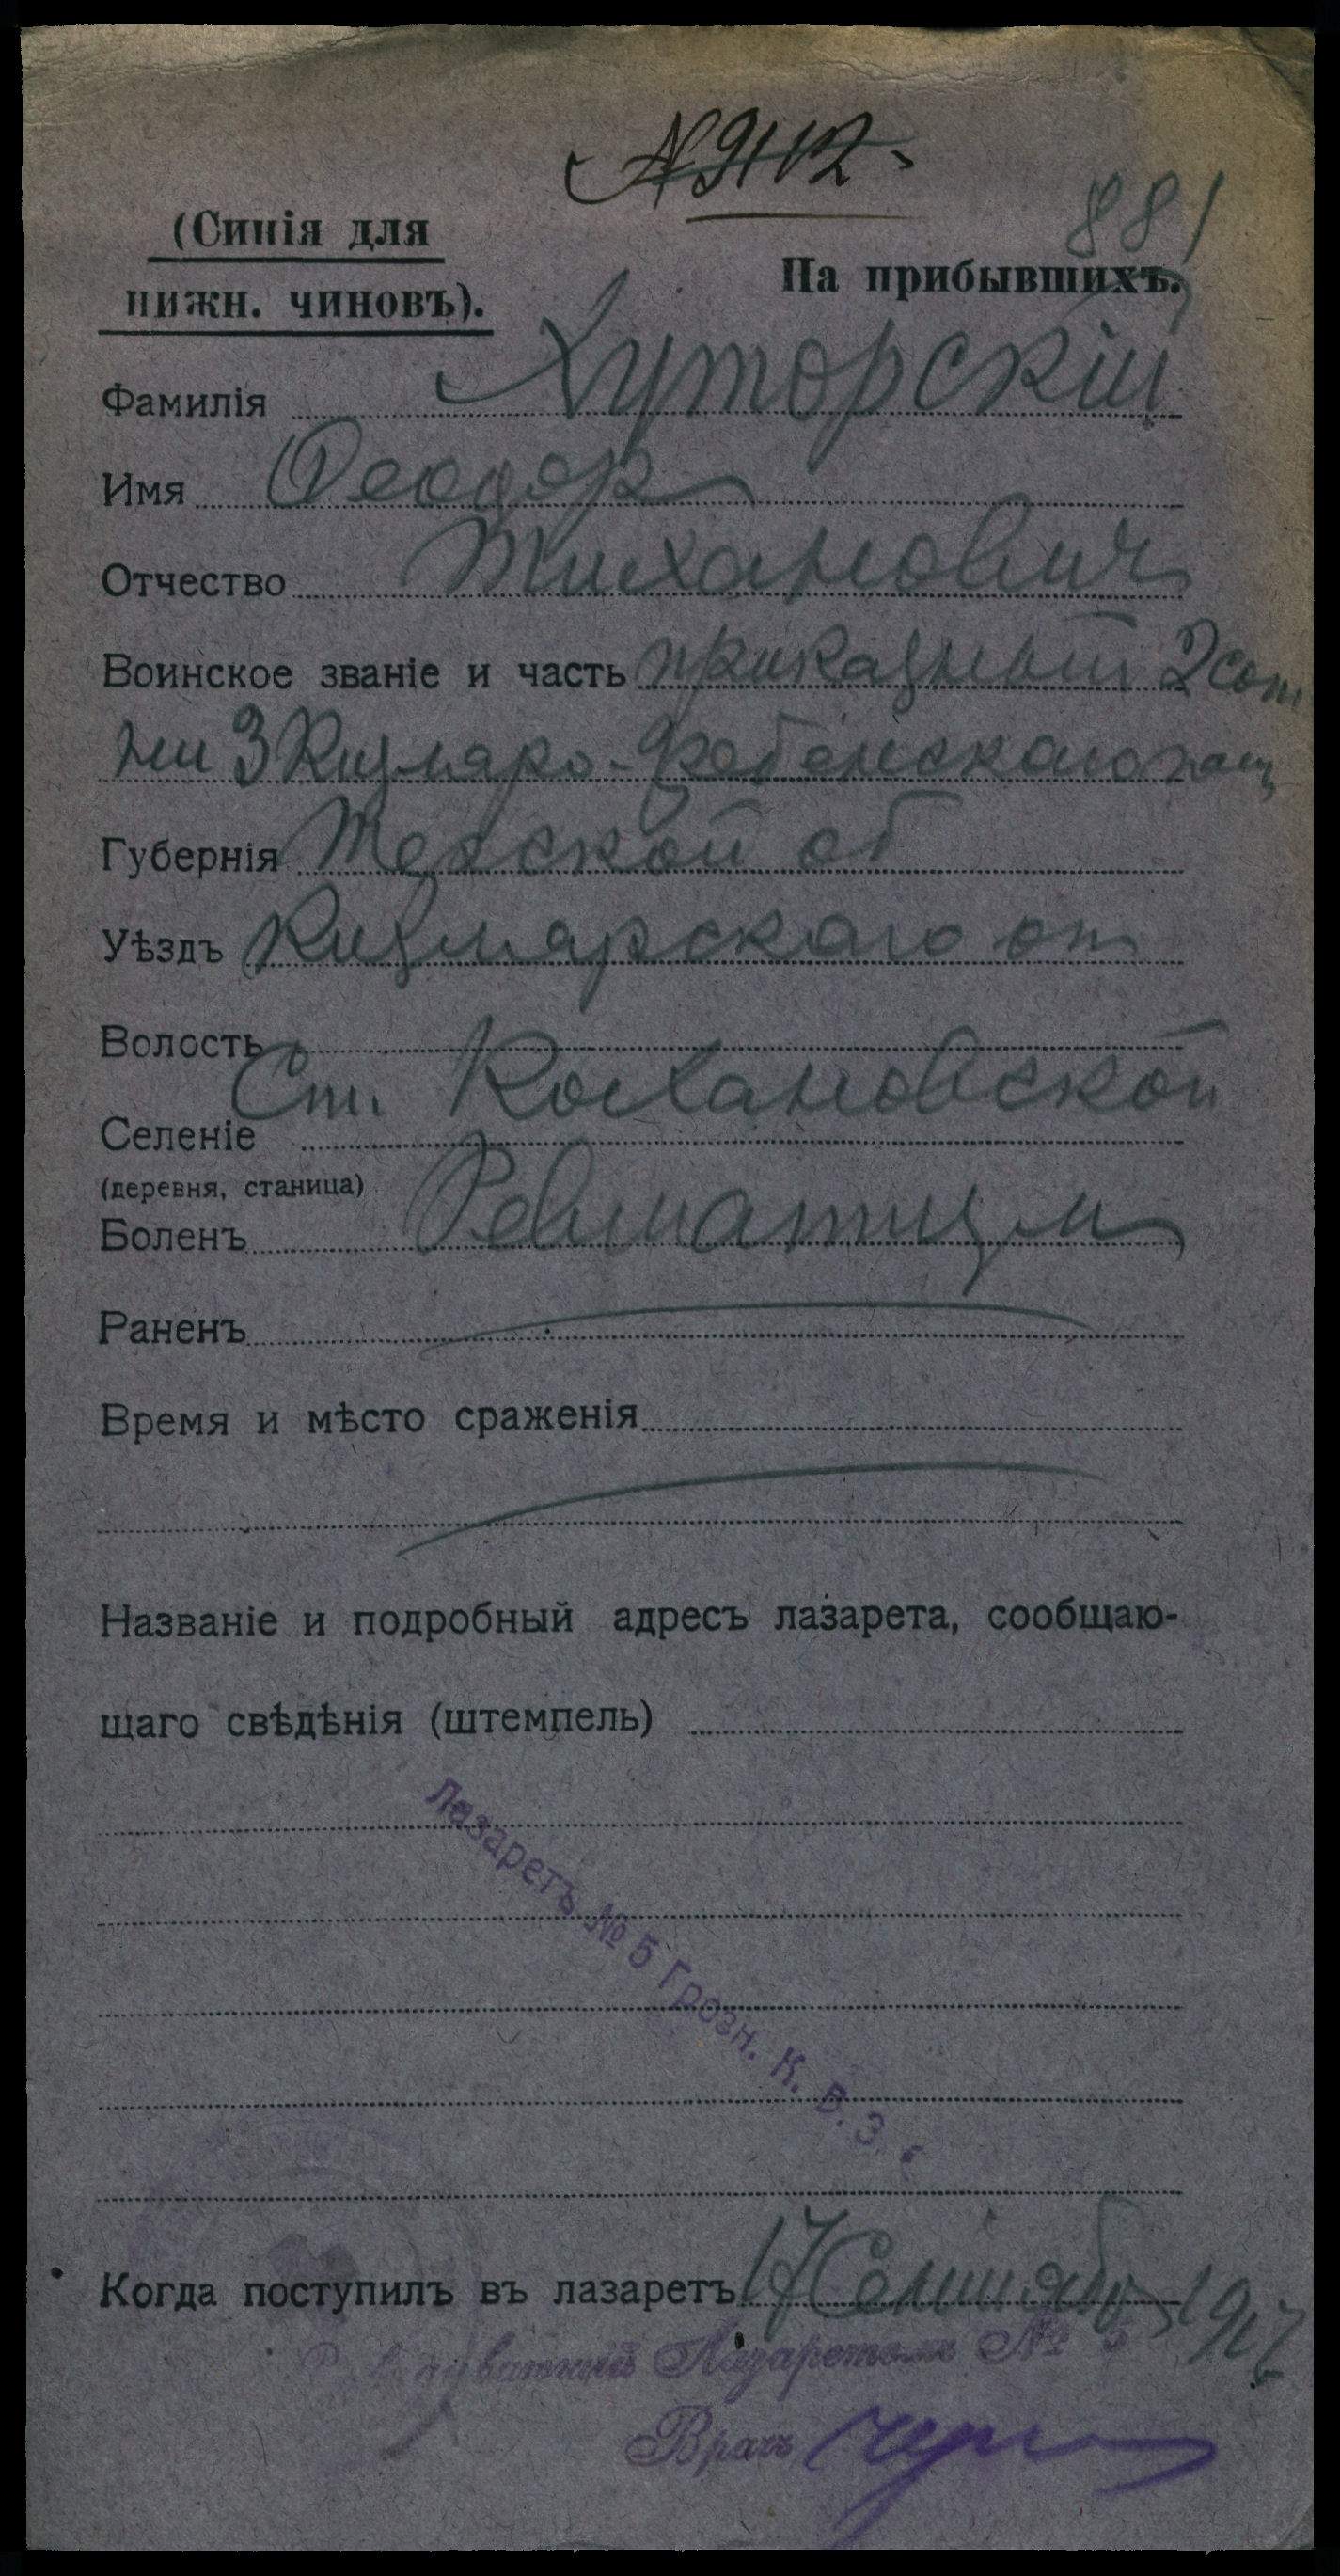 № 9112.
881
(Синія для
нижн. чиновъ).
На прибывшихъ.
Фамилія Хуторскій
Имя Феодор
Отчество Тиханович
Воинское званіе и часть приказный 2 сот
ни 3 Кизляро-Гребенскаго
Губернія Терской об
Уѣздъ Кизлярского от
Волость
Ст. Кохановской
Селеніе
(деревня, станица)
Боленъ Ревматизм
Раненъ
Время и мѣсто сраженія
Названіе и подробный адресъ лазарета, сообщаю-
щаго свѣдѣнія (штемпель)
Лазаретъ № 5 Грозн. К. В. З. С.
Когда поступилъ въ лазаретъ 17 Сентябр 1917
Лазаретомъ № 5
Врачъ